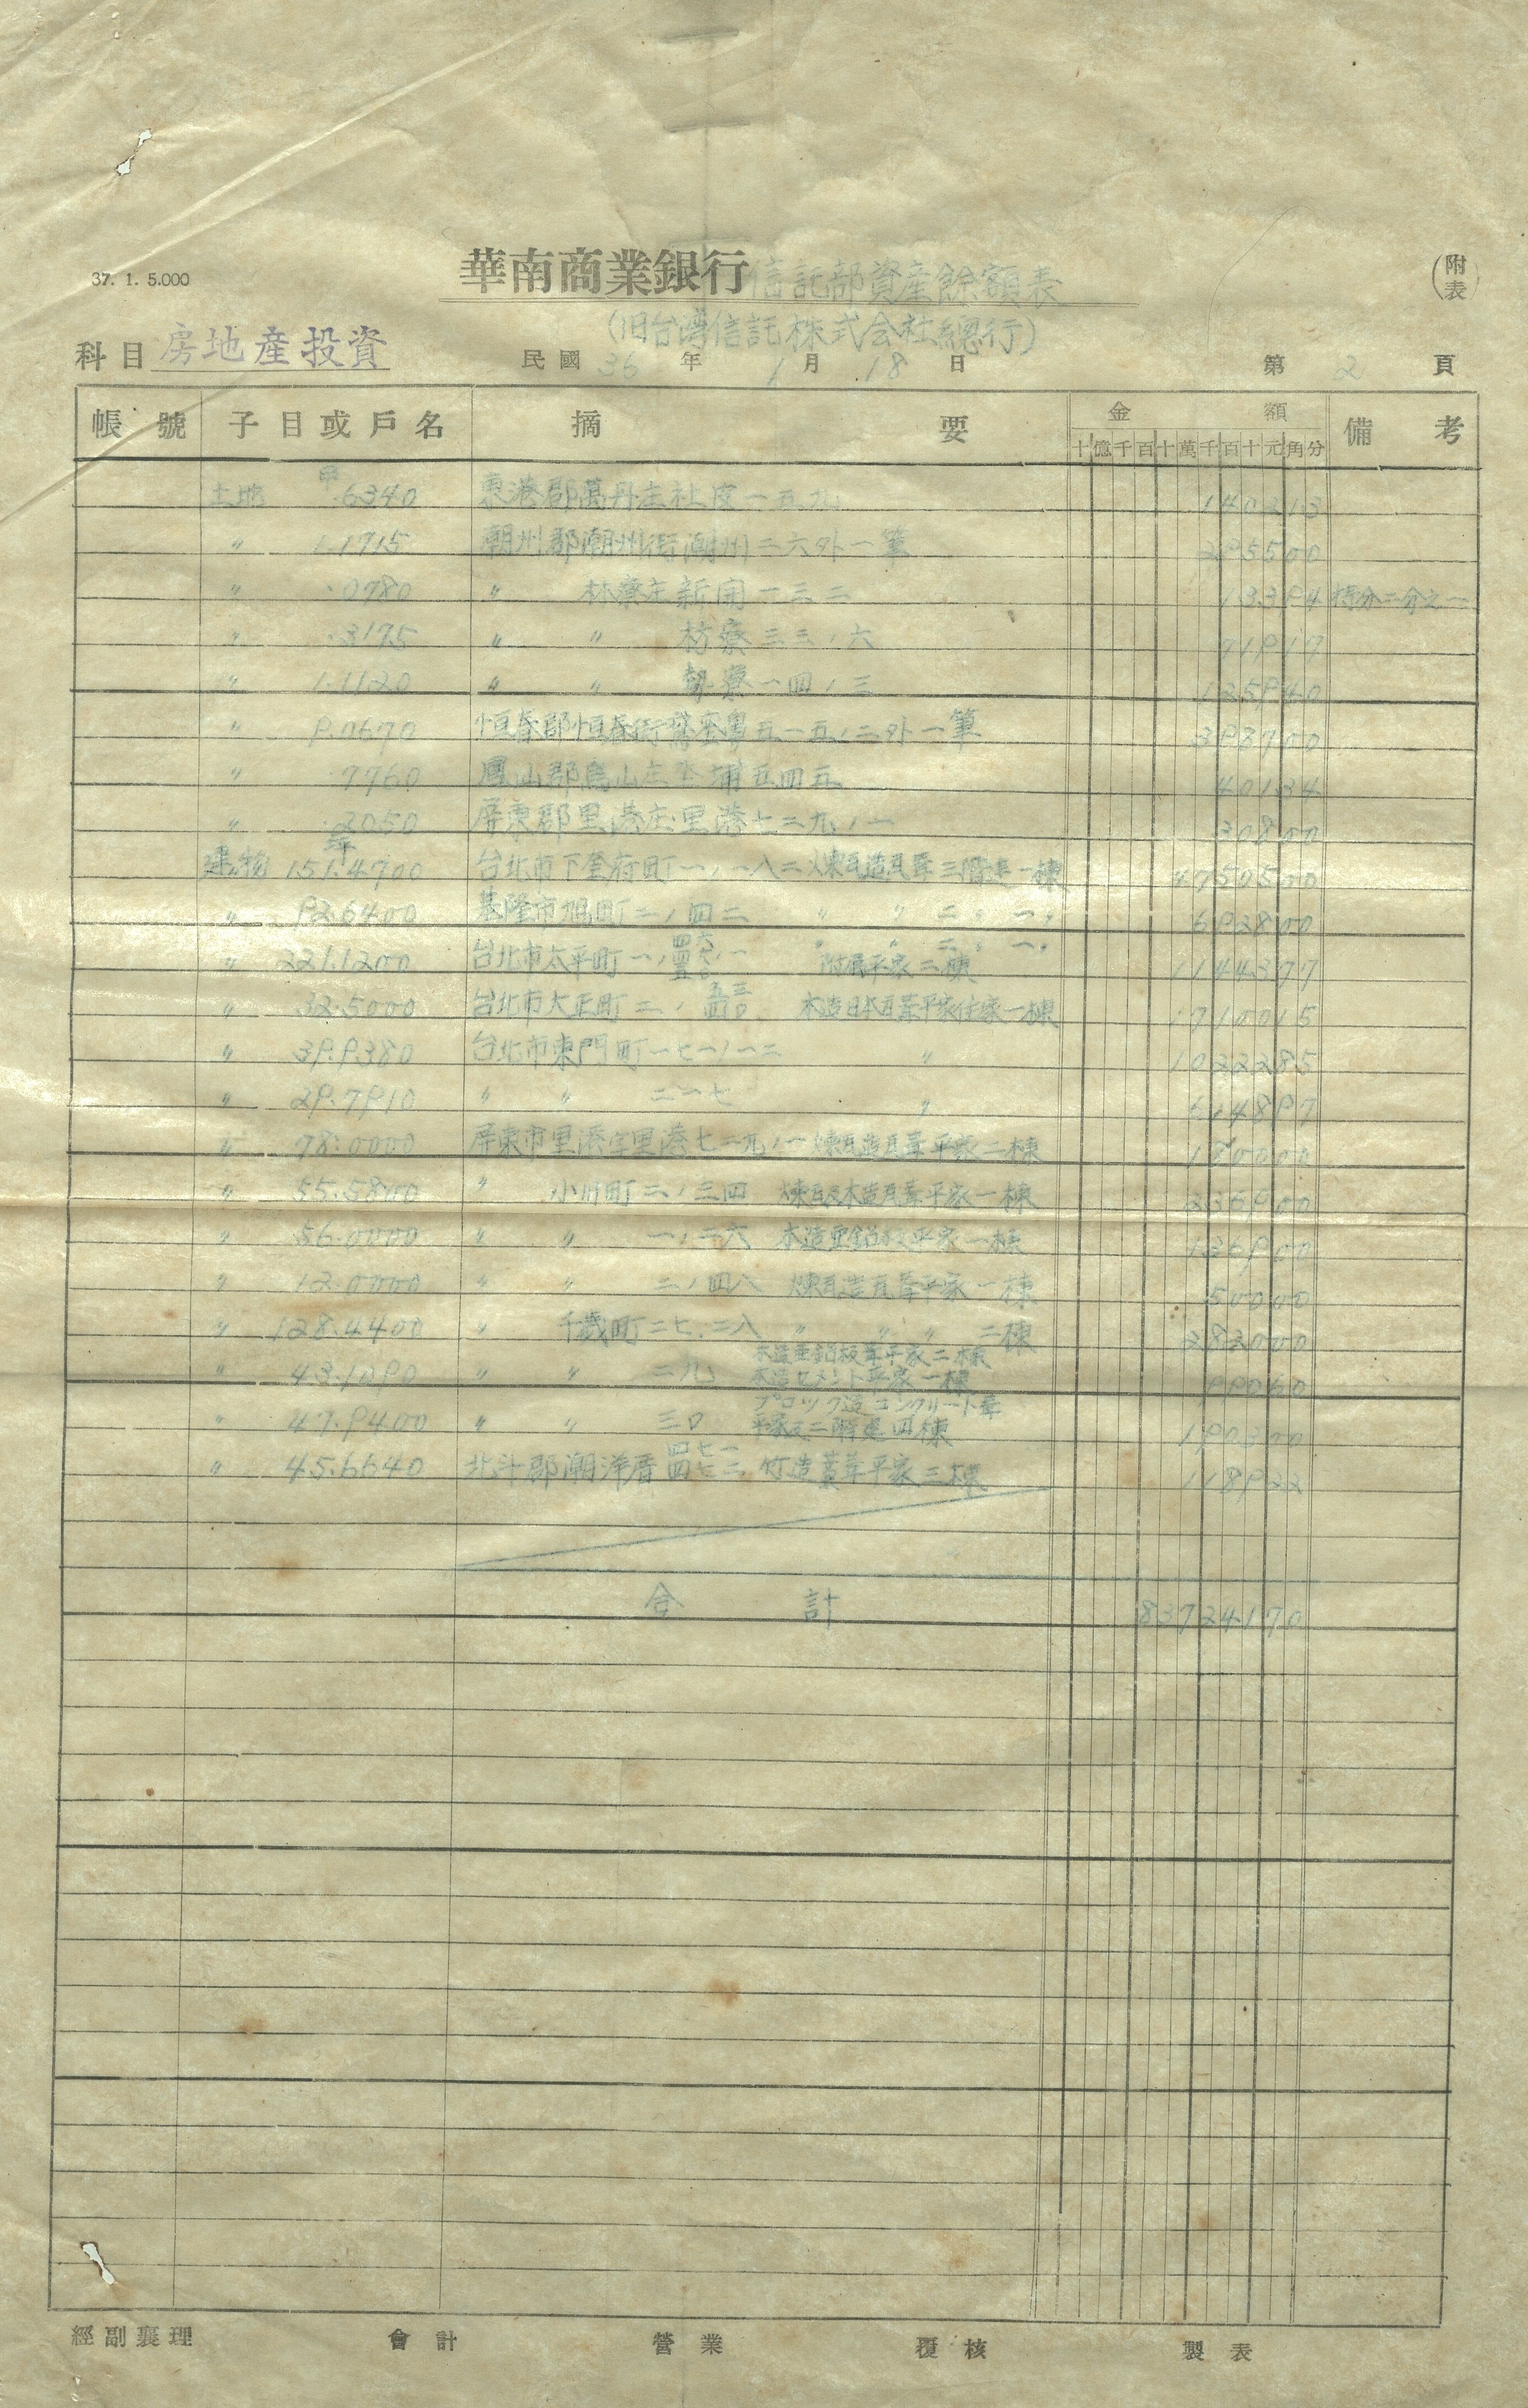 37. 1. 5.000
華南商業銀行信託部資產餘額表
(附表)
(旧台湾信託株式会社總行)
科目 房地產投資
民國 36 年 1 月 18 日
第 2 頁
帳號 子目或戶名 摘要 金額 備考
十億千百十萬千百十元角分
甲
土地 .6340 東港郡萬丹庄社皮一五九 140213
〃 1.1715 潮州郡潮州街潮州二六外一筆 295500
〃 .0780 〃 林寮庄新開一三二 13394 持分二分之一
〃 .3175 〃 〃 枋寮三三,六 71917
〃 1.1120 〃 〃 勢寮一四,三 125940
〃 9.0670 恒春郡恒春街 五一五,二外一筆 398700
〃 .7760 鳳山郡鳥山庄 埔五四五 40134
〃 .3050 屏東郡里港庄里港七二九,一 30800
坪
建物 151.4700 台北市下奎府町一,一八二煉瓦造瓦葺三階建一棟 4750500
〃 92.6400 基隆市旭町二,四二 〃 〃 二〃 一〃 692800
〃 221.1200 台北市太平町一, 〃 〃 二〃 一〃 附屬平家二棟 1144377
〃 32.5000 台北市大正町二, 木造日本瓦葺平家住家一棟 1710015
〃 39.9380 台北市東門町一七一,一二 〃 1022285
〃 29.7910 〃 〃 二一七 〃 614897
〃 78.0000 屏東市里港字里港七二九,一煉瓦造瓦葺平家二棟 180000
〃 55.5800 〃 小川町二,三四 煉瓦及木造瓦葺平家一棟 236900
〃 56.0000 〃 〃 一,二六 木造亜鉛板平家一棟 136900
〃 12.0000 〃 〃 二,四八 煉瓦造瓦葺平家一棟 50000
〃 128.4400 〃 千歲町二七.二八 〃 〃 〃 二棟 282000
〃 43.1290 〃 〃 二九 木造亜鉛板葺平家二棟 木造セメント平家一棟 99060
〃 47.9400 〃 〃 三〇 ブロック造コンクリート葺平家及二階建四棟 190300
〃 45.6640 北斗郡潮洋厝 四七一 四七二 竹造藁葺平家三棟 118922
合計 83724170
經副襄理 會計 營業 覆核 製表